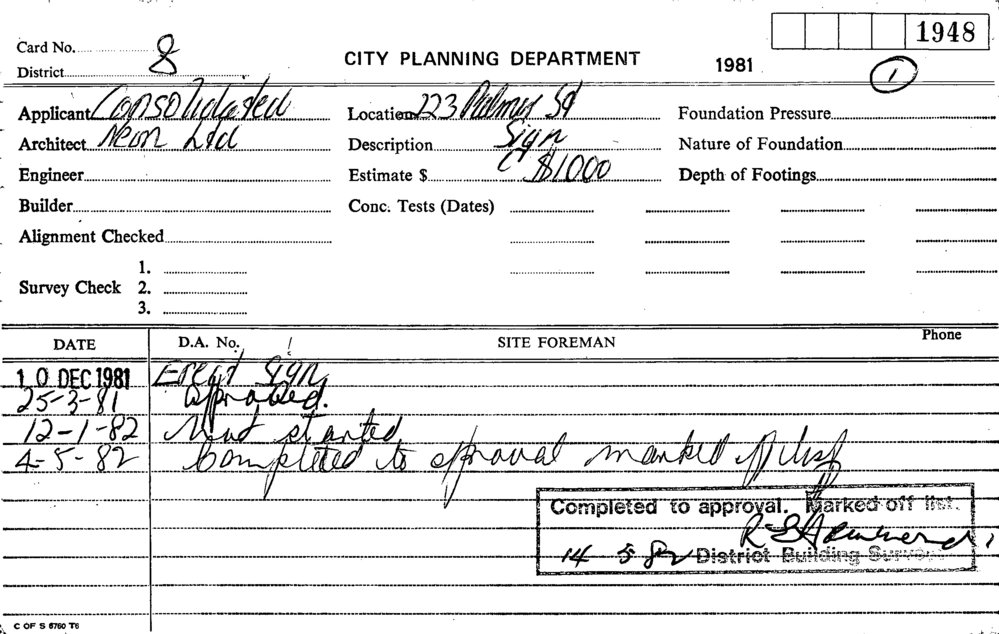 1948
Card No. 8
District
CITY PLANNING DEPARTMENT
1981
1
Applicant Consolidated
Location 223 Palmer St
Foundation Pressure
Architect Neon Ltd
Description Sign
Nature of Foundation
Engineer
Estimate $ $1000
Depth of Footings
Builder
Conc. Tests (Dates)
Alignment Checked
1.
Survey Check 2.
3.
DATE D.A. No. SITE FOREMAN Phone
10 DEC 1981 Erect Sign
25-3-81 approved.
12-1-82 Not started
4-5-82 Completed to approval marked off list
Completed to approval. Marked off list.
14 5 82 District Building Surveyor
C OF S 6760 T6